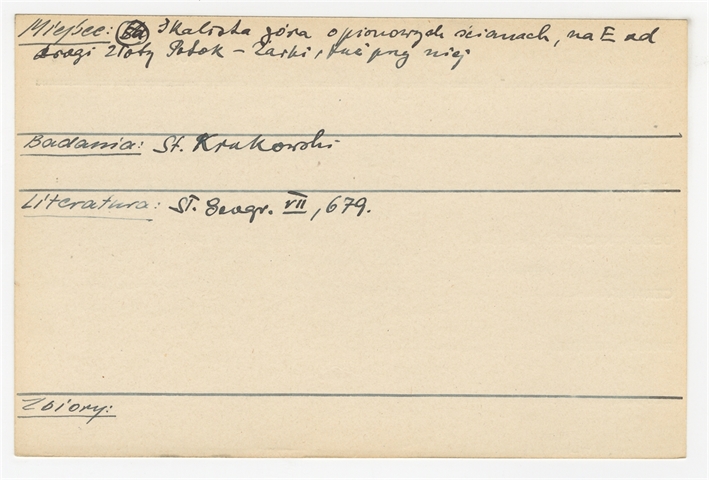 Miejsce: Skalista góra o pionowych ścianach, na E od
drogi Złoty Potok - Żarki, tuż przy niej
Badania: St. Krukowski
Literatura: Sł. Geogr. VII, 679.
Zbiory: